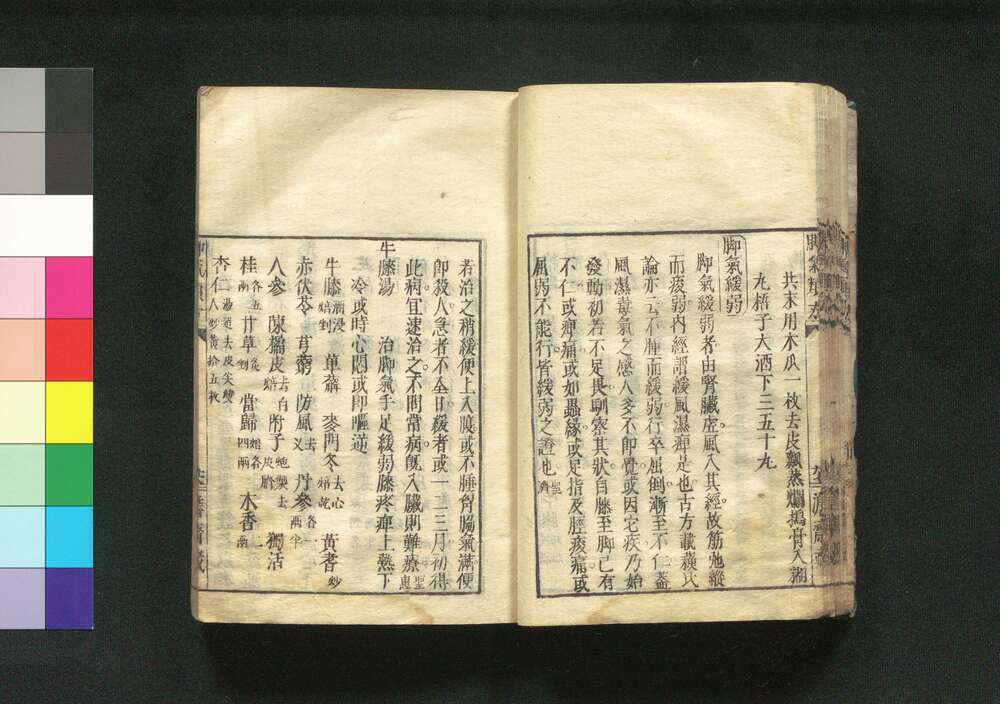 共末用木瓜一枚去皮瓤蒸爛搗膏入糊
丸梧子大酒下三五十丸
脚氣緩弱
脚氣緩弱者由腎臟虛風入其經故筋弛縱
而痠弱内經謂緩風濕痺是也古方載蘇氏
論亦云不腫而緩弱行卒屈倒漸至不仁蓋
風濕毒氣之感人多不即覺或因它疾乃始
發動初若不足畏馴察其狀自膝至脚已有
不仁或痺痛或如蟲緣或足指及脛痠痛或
屈弱不能行皆緩弱之證也聖濟
若治之稍緩便上入腹或不腫胷脇氣滿便
即殺人急者不全日緩者或一二三月初得
此病宜速治之不問常病旣入臟則難療聖惠
牛膝湯　治脚氣手足緩弱膝疼痺上熱下
冷或時心悶或即嘔逆
牛膝酒浸焙剉　萆薢　麥門冬去心焙乾　黃耆炒
赤茯苓　芎藭　防風去叉　丹參各一兩半
人參　陳橘皮去白焙　附子炮裂去皮臍　獨活
桂各五兩　甘草炙剉　當歸焙各四兩　木香一兩
杏仁湯退去皮尖雙人炒黃拾五枚